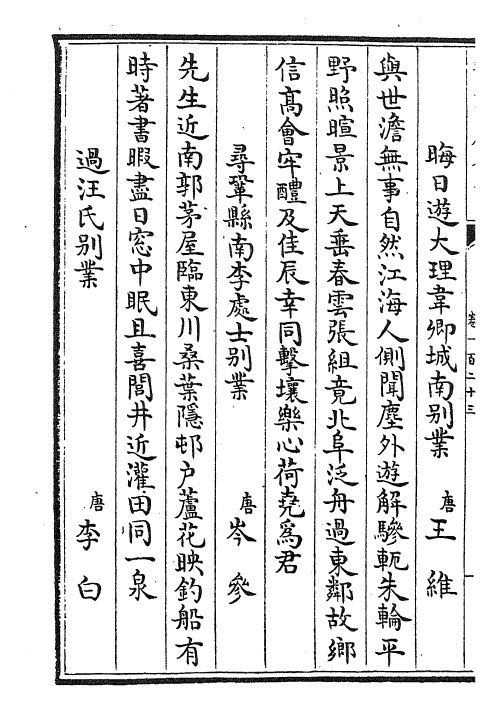 卷一百二十三
晦日遊大理韋卿城南别業 唐 王維
與世澹無事自然江海人側聞塵外遊解驂軛朱輪平
野照暄景上天垂春雲張組竟北阜泛舟過東鄰故鄉
信髙會牢醴及佳辰幸同擊壤樂心荷堯為君
尋鞏縣南李處士别業 唐 岑參
先生近南郭茅屋臨東川桑葉隱邨户蘆花映釣船有
時著書暇盡日窓中眠且喜閭井近灌田同一泉
過汪氏别業 唐 李白